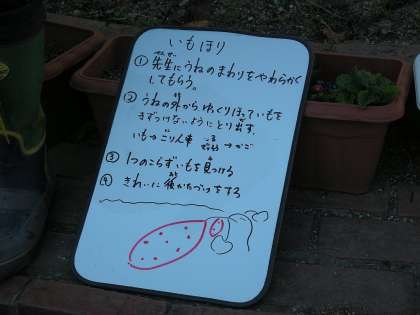 いもほり
① 先生にうねのまわりをやわらかく
してもらう。
② うねの外から、ゆっくりほっていもを
きずつけないようにとり出す。
いも→ごりん車 →かご
③ 1つのこらずいもを見つける
④ きれいに後かたづけをする